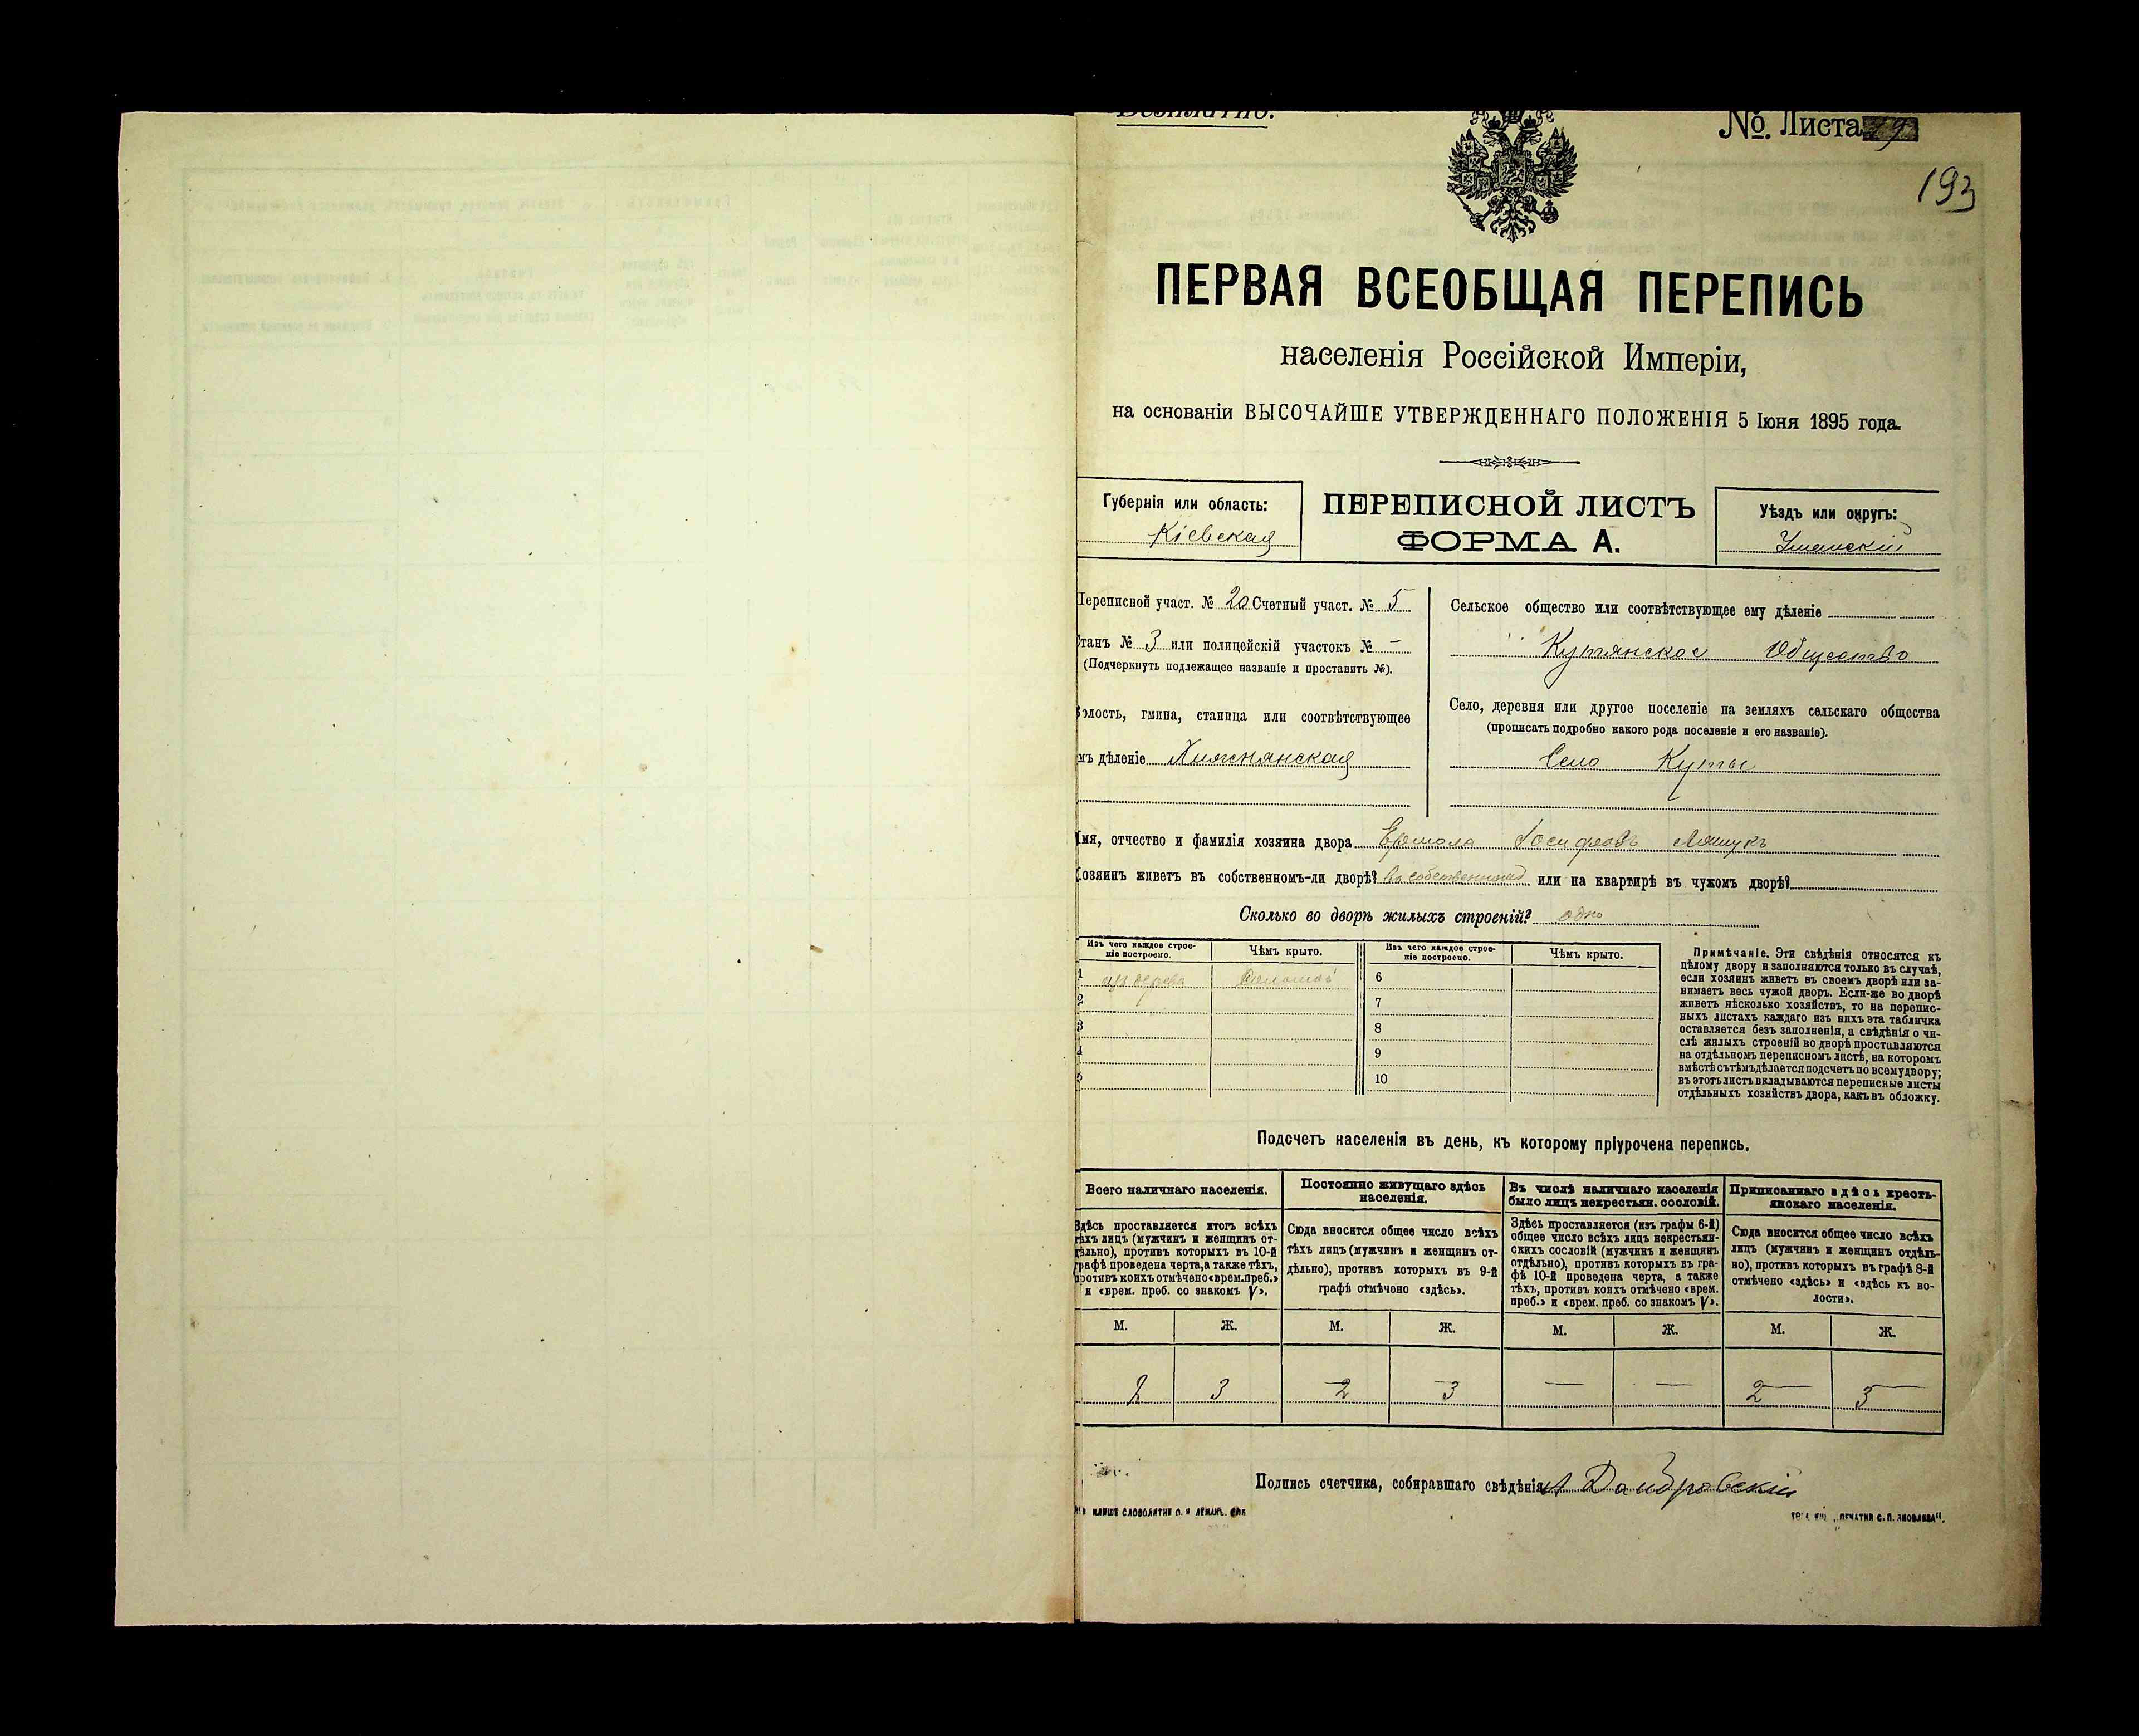 Безплатно.
№ Листа 19
193
ПЕРВАЯ ВСЕОБЩАЯ ПЕРЕПИСЬ
населенія Россійской Имперіи,
на основаніи ВЫСОЧАЙШЕ УТВЕРЖДЕННАГО ПОЛОЖЕНІЯ 5 Іюня 1895 года.
Губернія или область:
Кіевская
ПЕРЕПИСНОЙ ЛИСТЪ
ФОРМА А.
Уѣздъ или округъ:
Уманскій
Переписной участ. № 20 Счетный участ. № 5
Станъ № 3 или полицейскій участокъ № —
(Подчеркнуть подлежащее названіе и проставить №).
Волость, гмина, станица или соотвѣтствующее
имъ дѣленіе Хижнянская
Сельское общество или соотвѣтствующее ему дѣленіе
Кутянское Общество
Село, деревня или другое поселеніе на земляхъ сельскаго общества
(прописать подробно какого рода поселеніе и его названіе).
Село Куты
Имя, отчество и фамилія хозяина двора Ермола Іосифовъ Ляшукъ
Хозяинъ живетъ въ собственномъ-ли дворѣ? въ собственномъ или на квартирѣ въ чужомъ дворѣ?
Сколько во дворѣ жилыхъ строеній? одно
Изъ чего каждое строе-
ніе построено.
Чѣмъ крыто.
Изъ чего каждое строе-
ніе построено.
Чѣмъ крыто.
1 изъ дерева Соломой 6
2 7
3 8
4 9
5 10
Примѣчаніе. Эти свѣдѣнія относятся къ
цѣлому двору и заполняются только въ случаѣ,
если хозяинъ живетъ въ своемъ дворѣ или за-
нимаетъ весь чужой дворъ. Если-же во дворѣ
живетъ нѣсколько хозяйствъ, то на перепис-
ныхъ листахъ каждаго изъ нихъ эта табличка
оставляется безъ заполненія, а свѣдѣнія о чи-
слѣ жилыхъ строеній во дворѣ проставляются
на отдѣльномъ переписномъ листѣ, на которомъ
вмѣстѣ съ тѣмъ дѣлается подсчетъ по всему двору;
въ этотъ листъ вкладываются переписные листы
отдѣльныхъ хозяйствъ двора, какъ въ обложку.
Подсчетъ населенія въ день, къ которому пріурочена перепись.
Всего наличнаго населенія.
Здѣсь проставляется итогъ всѣхъ
тѣхъ лицъ (мужчинъ и женщинъ от-
дѣльно), противъ которыхъ въ 10-й
графѣ проведена черта, а также тѣхъ,
противъ коихъ отмѣчено «врем. преб.»
и «врем. преб. со знакомъ V».
Постоянно живущаго здѣсь
населенія.
Сюда вносится общее число всѣхъ
тѣхъ лицъ (мужчинъ и женщинъ от-
дѣльно), противъ которыхъ въ 9-й
графѣ отмѣчено «здѣсь».
Въ числѣ наличнаго населенія
было лицъ некрестьян. сословій.
Здѣсь проставляется (изъ графы 6-й)
общее число всѣхъ лицъ некрестьян-
скихъ сословій (мужчинъ и женщинъ
отдѣльно), противъ которыхъ въ гра-
фѣ 10-й проведена черта, а также
тѣхъ, противъ коихъ отмѣчено «врем.
преб.» и «врем. преб. со знакомъ V».
Приписаннаго здѣсь кресть-
янскаго населенія.
Сюда вносится общее число всѣхъ
лицъ (мужчинъ и женщинъ отдѣль-
но), противъ которыхъ въ графѣ 8-й
отмѣчено «здѣсь» и «здѣсь къ во-
лости».
М. Ж. М. Ж. М. Ж. М. Ж.
2 3 2 3 — — 2 3
Подпись счетчика, собиравшаго свѣдѣнія А Домбровскій
КЛИШЕ СЛОВОЛИТНИ О. И. ЛЕМАНЪ. СПБ
„ПЕЧАТНЯ С. П. ЯКОВЛЕВА“.